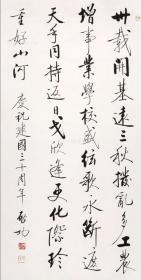 卅載開基遠三秋撥亂多工農
增事業學校盛絃歌永斷逆
天手同持返日戈欣逢更化際珍
重好山河 慶祝建國三十周年 启功